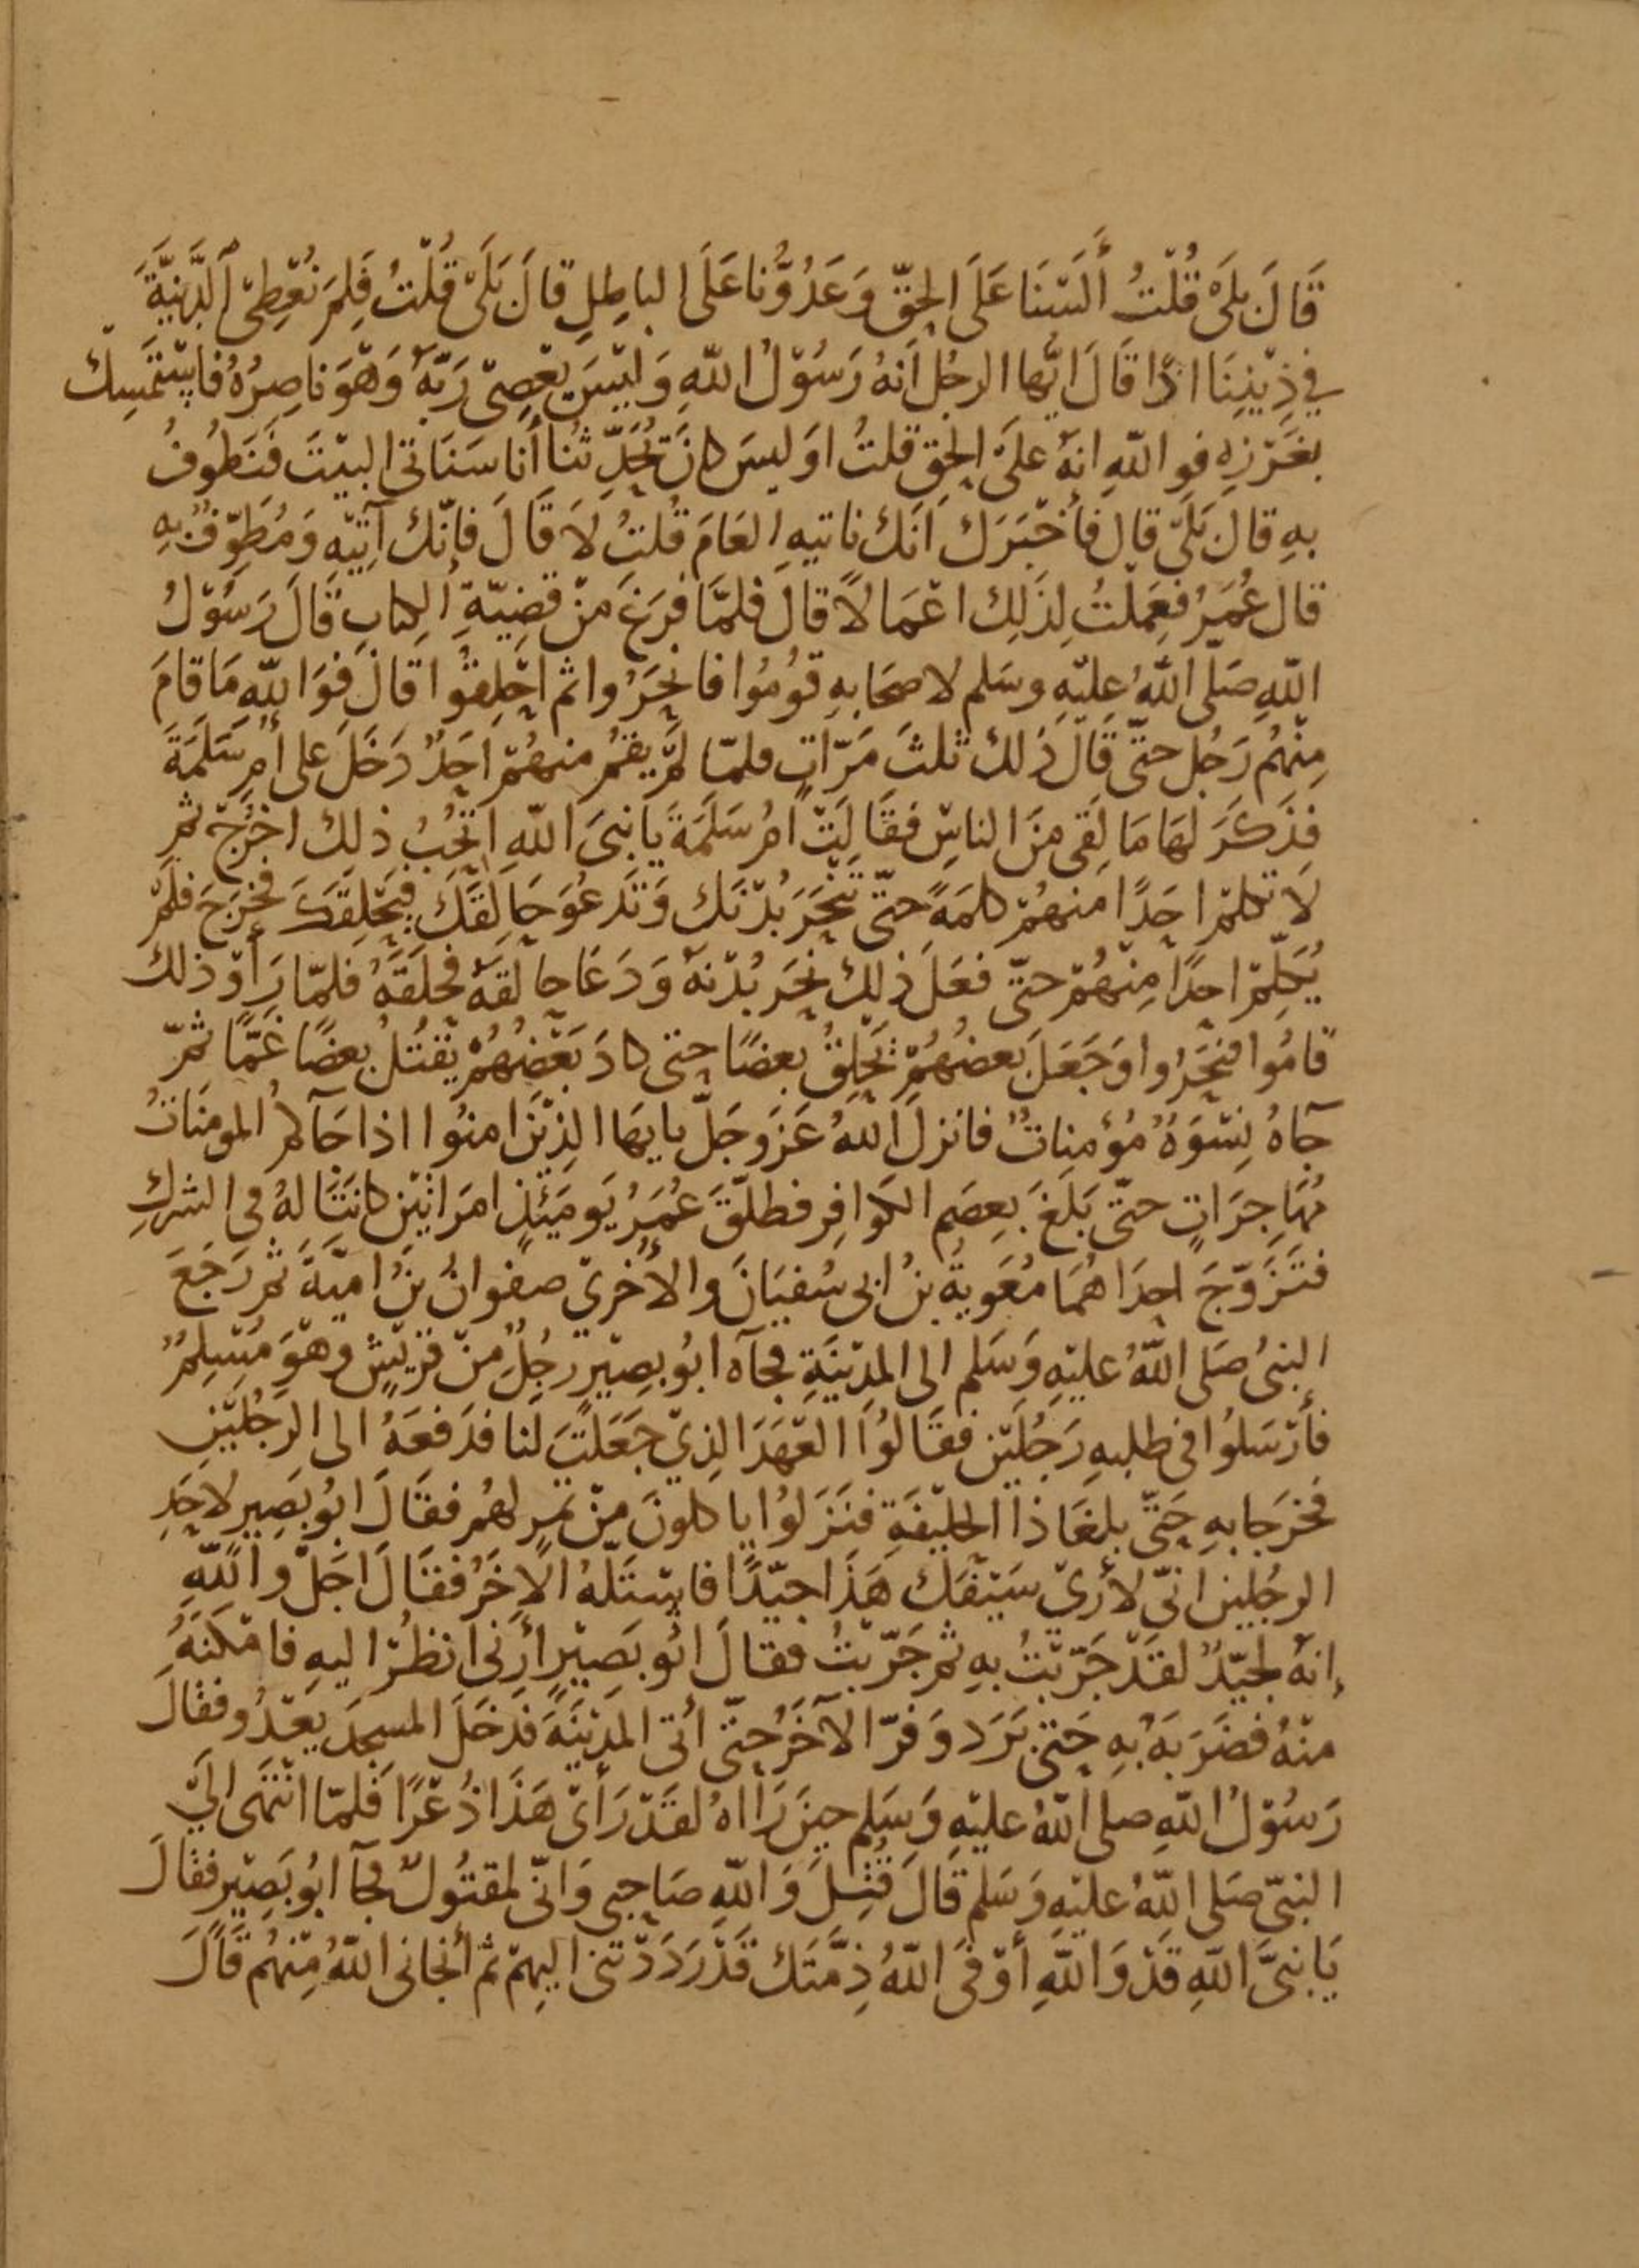 قَالَ بَلَى قُلْتُ أَلَسْنَا عَلَى الحَقِّ وَعَدُوُّنا عَلَى الباطِلِ قالَ بَلَى قُلْتُ فَلِمَ نُعْطِى الدَّنِيَّةَ
في دِيْنِنَا اذًا قَالَ ايُّها الرجُل انهُ رَسُوْلُ اللّهِ وَلَيْسَ يَعْصِى رَبَّهُ وَهْوَ نا صِرُهُ فَاسْتَمْسِك
بغَرْزِهِ فو اللّهِ انهُ علىَ الحَقِ قلتُ اوَ ليسَ كانَ يُحَدِّثنا أنا سَنَاتى البيْتَ فَنَطُوفُ
بهِ قالَ بَلَى قال فأخْبَرَك اَنَك تاتيهِ العَامَ قُلتُ لَا قَالَ فإنّك آتِيْهِ وَمُطَوِّفٌ بهِ
قال عُمَرُ فعَمِلْتُ لِذَلِك اعْمَالاً قالَ فلمَّا فرَغَ مِنْ قضِيّةِ الكِتابِ قَالَ رَسُوْلُ
اللّهِ صَلَى اللّهُ عليْهِ وسَلم لاصحَابهِ قُومُوا فانْحَرُوا ثم احْلِقوُا قالَ فَوَاللّهِ مَا قامَ
مِنْهُم رَجُل حتىّ قالَ ذلك ثلثَ مَرّاتٍ فلمّا لمْ يقمْ منهُمْ احَدٌ دَخَلَ على أمِ سَلَمَةَ
فذَكَرَ لهَا مَا لقِى مِنَ الناسِ فقالَتْ امُ سَلَمَةَ يا نبىَ اللّهِ اتحِبُ ذلِك اخْرُجْ ثم
لَا تكلم احَدًا منهُمْ كلمَةً حتىّ تَنْحَرَ بُدْنَك وَتَدعُوَ حَالِقَكَ فيَحْلِقَكَ فخرَجَ فلَمْ
يُكَلِّمْ احدًا مِنْهُمْ حتىّ فعَلَ ذلِك نَحَرَ بُدْنهُ وَدَعَا حالقهُ فحَلَقهُ فلمّا رَأَوْ ذلك
قامُوا فنَحَرُوا وَجَعَلَ بَعضهُمْ يَحْلِقُ بعضًا حتى كادَ بَعْضهُمْ يَقتُلُ بعضًا غمًّا ثمّ
جآهُ نِسْوَةٌ مُؤمِنَاتٌ فانزلَ اللّهُ عَزَ وجَلّ يا يهَا الذِيْنَ امنوُا اذا جَآكم المومِنَاتُ
مُهَاجِرَاتٍ حتىّ بَلَغَ بعِصَم الكَوَافِرِ فطلّقَ عُمَرُ يَومَئِذٍ امرَاتَيْن كانَتَا لهُ فى الشركِ
فتَزَوّجَ احدَاهُمَا مُعَويةُ بنُ ابى سُفيَانَ والأخْرىَ صفوانُ بنُ اميّةَ ثمَ رَجَعَ
النبىُ صَلى اللّهُ عليْهِ وَسَلم الى المدِيْنَةِ فجآه ابُو بصِيْرٍ رجُلٌ مِنْ قرَيْشٍ وهْوَ مُسْلِمٌ
فأرْسَلوُا فى طلبهِ رَجُلَيْن فقالوُا العَهْدَ الذِيْ جَعَلْتَ لَنا فدَفعَهُ الى الرَجُلَيْنِ
فخرَجَا بهِ حَتىّ بلغَا ذا الحليْفَةِ فنَزَلوُا يا كلونَ مِنْ تمرٍ لهُم فقالَ ابوُ بَصِيرٍ لاحَدِ
الرجُلين انىِّ لأرىَ سَيْفَك هَذَا جيّدًا فاسْتَلّهُ الآخَرُ فقالَ اجَلْ واللّهِ
إنهُ لجيّدٌ لقدْ جَرّبْتُ بهِ ثم جَرّبْتُ فقالَ ابُو بَصِيْرٍ أرِنى انظُرْ اليهِ فامْكَنَهُ
منْهُ فضَرَبَهُ بهِ حَتىّ بَرَد وَفرّ الآخَرُ حتىّ أتى المدِيْنَةَ فدَخَلَ المسجدَ يَعْدُو فقالَ
رَسُوْلُ اللّهِ صلى اللّهُ عليْهِ وَسَلم حِينَ رَااهُ لقدْ رَأىَ هَذَا ذُعْرًا فَلمّا انْتَهَى الَىَ
النبىّ صَلى اللّهُ عليْهِ وَسَلم قَالَ قُتِلَ وَاللّهِ صَاحِبى وَانىّ لمقتُولٌ فجآ ابُو بَصِيْرٍ فقالَ
يَا نبىَّ اللّهِ قَدْ وَاللّهِ أَوْفىَ اللّهُ ذِمَّتَك قَدْ رَدَدْتنى اليهِمْ ثم أنجانى اللّهُ مِنْهُم قَالَ